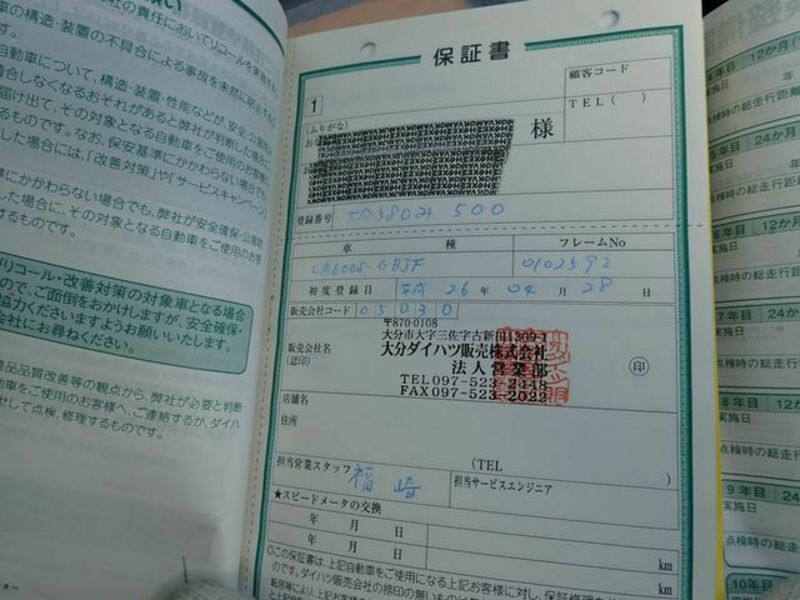 社の責任においてリコールを実施する
車の構造・装置の不具合による事故を未然に防止する
す。
自動車について、構造・装置・性能などが、安全・公害防
適合しなくなるおそれがあると弊社が判断した場合に
届け出て、その対象となる自動車をご使用のお客様へ
するものです。なお、保安基準にかかわらない場合でも、
した場合には、「改善対策」や「サービスキャンペーン」
準にかかわらない場合でも、弊社が安全確保・公害防
した場合に、その対象となる自動車をご使用のお客
するものです。
リコール・改善対策の対象車となる場合
ので、ご面倒をおかけしますが、安全確保・
協力くださいますようお願いいたします。
会社にお尋ねください。
商品品質改善等の観点から、弊社が必要と判断
の車をご使用のお客様へ、ご連絡するか、ダイハ
せして点検、修理するものです。
保証書
1
顧客コード
TEL( )
(ふりがな)
様
登録番号 大分580み 500
車種
フレームNo
LA600S-GBJF
0102592
初度登録日 平成 26 年 04 月 28 日
販売会社コード 05030
〒870-0108
大分市大字三佐字古新田1309-1
販売会社名
(認印)
大分ダイハツ販売株式会社
法人営業部
印
TEL097-523-2448
FAX097-523-2022
店舗名
住所
(TEL )
担当営業スタッフ 福崎
担当サービスエンジニア
★スピードメータの交換
年 月 日
km
年 月 日
km
◎この保証書は、上記自動車をご使用になる上記お客様に対し、保証修理を
のです。ダイハツ販売会社の捺印の無いものは
転居等により、上記お客様
整備
年目 12か月
点検時の総走行距離
年目 24か月
実施日
点検時の総走行距
6年目 12か月
実施日
点検時の総走行距
7年目 24か月
実施日
点検時の総走行距
8年目 12か月
実施日
点検時の総走行距
9年目 24か
実施日
点検時の総走行
10年目